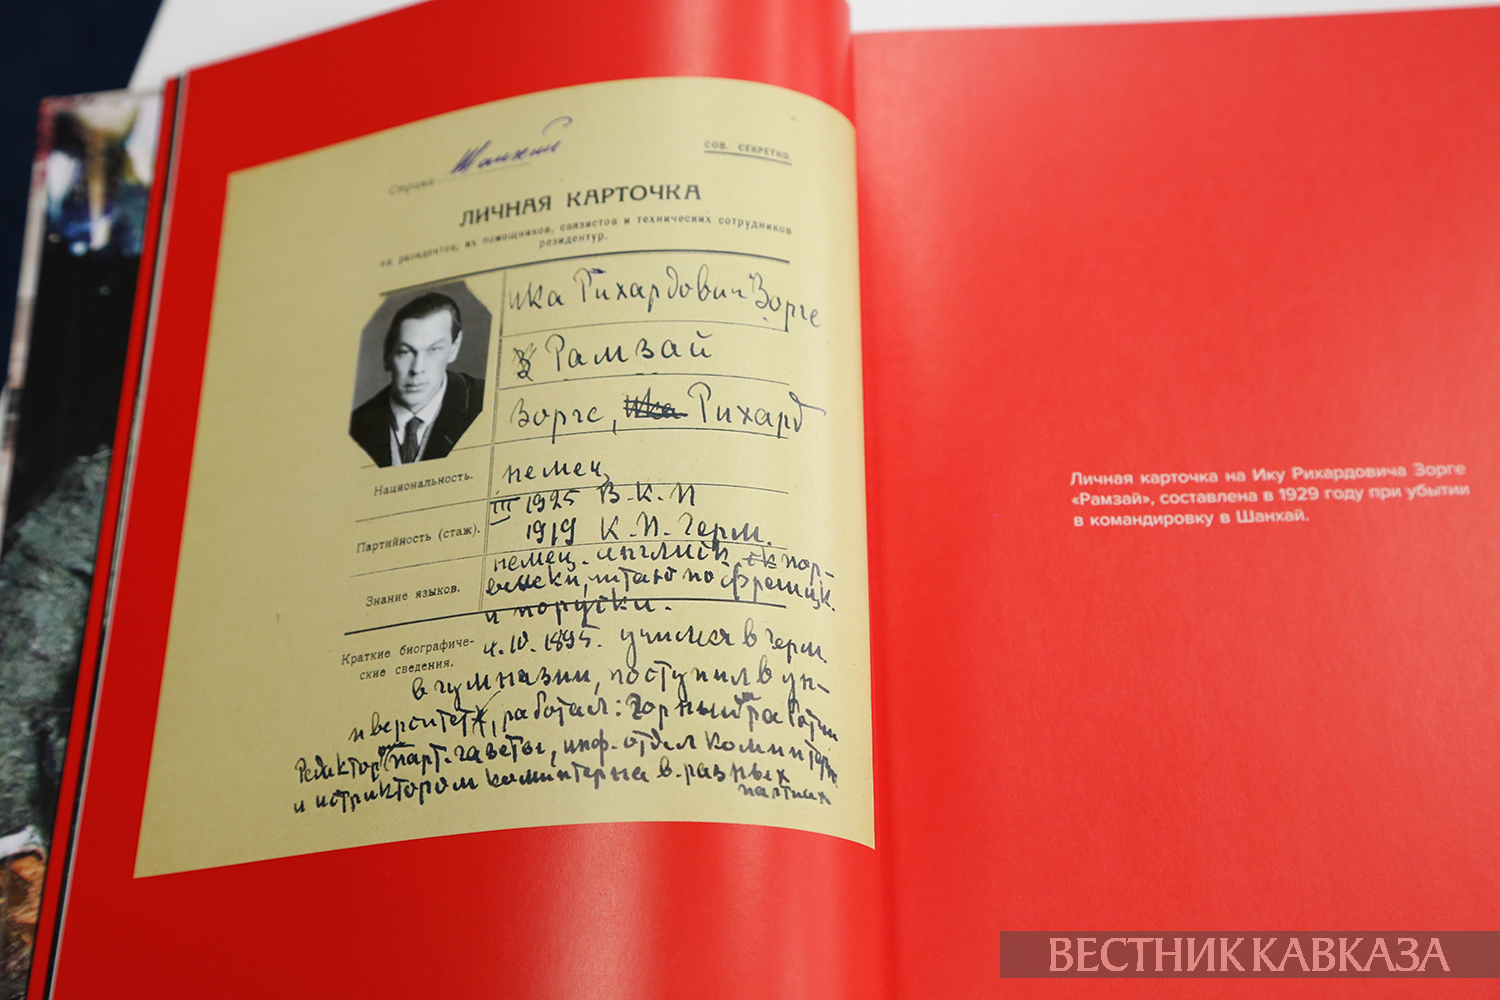 Страна Шанхай
СОВ. СЕКРЕТНО.
ЛИЧНАЯ КАРТОЧКА
на резидентов, их помощников, связистов и технических сотрудников
резидентур.
Ика Рихардович Зорге
Рамзай
Зорге, Ика Рихард
Национальность.
немец
III 1925 В.К.П
Партийность (стаж).
1919 К.П. Герм.
Знание языков.
немец. английск. норвежски, читаю по француск.
и по руски.
Краткие биографиче-
ские сведения.
4.IV.1895. учился в Герм.
в гумназии, поступил в ун-
иверситет, работал: горный рабочий
Редактор парт. газеты, инф. отдел коминтерн
и истриктором коминтерна в разных
партиях
Личная карточка на Ику Рихардовича Зорге
«Рамзай», составлена в 1929 году при убытии
в командировку в Шанхай.
ВЕСТНИК КАВКАЗА